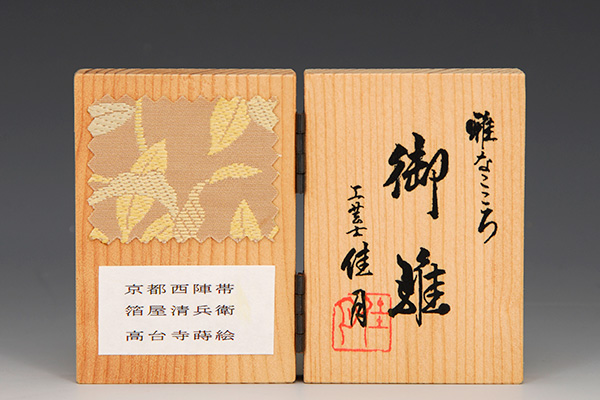 京都西陣帯
箔屋清兵衛
高台寺蒔絵
雅なこころ
御雛
工芸士
佳月